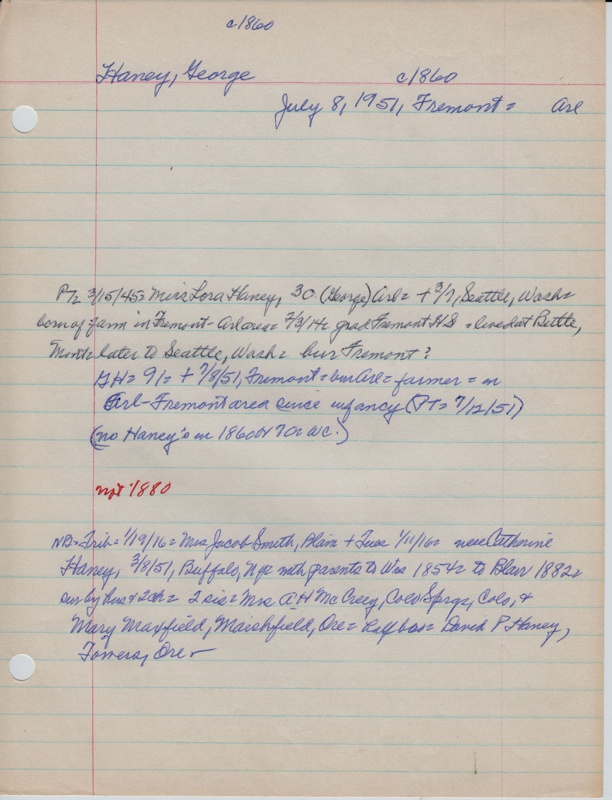 c1860
Haney, George c1860
July 8, 1951, Fremont = Arl
3/15/45 = Miss Lora Haney, 30 (George) Arl = + 3/7, Seattle, Wash =
born of farm in Fremont - Arl area = grad Fremont HS = lived at Butte,
Mont = later to Seattle, Wash = bur Fremont?
GH = 91 = + 7/8/51, Fremont = bur Arl = farmer = in
Arl - Fremont area since infancy (PT = 7/12/51)
(no Haney's in 1860 or 70 = WC.)
not 1880
Trib = 1/19/16 = Mrs Jacob Smith, Blair + Tues 1/11/16 = nee Catherine
Haney, 3/8/51, Buffalo, NY = with parents to Wis 1854 = to Blair 1882 =
sur by hus + 2 ch = 2 sis = Mrs A H McCrey, Colo Sprgs, Colo, +
Mary Maxfield, Marshfield, Ore = half bro = David P Haney,
Towers, Ore